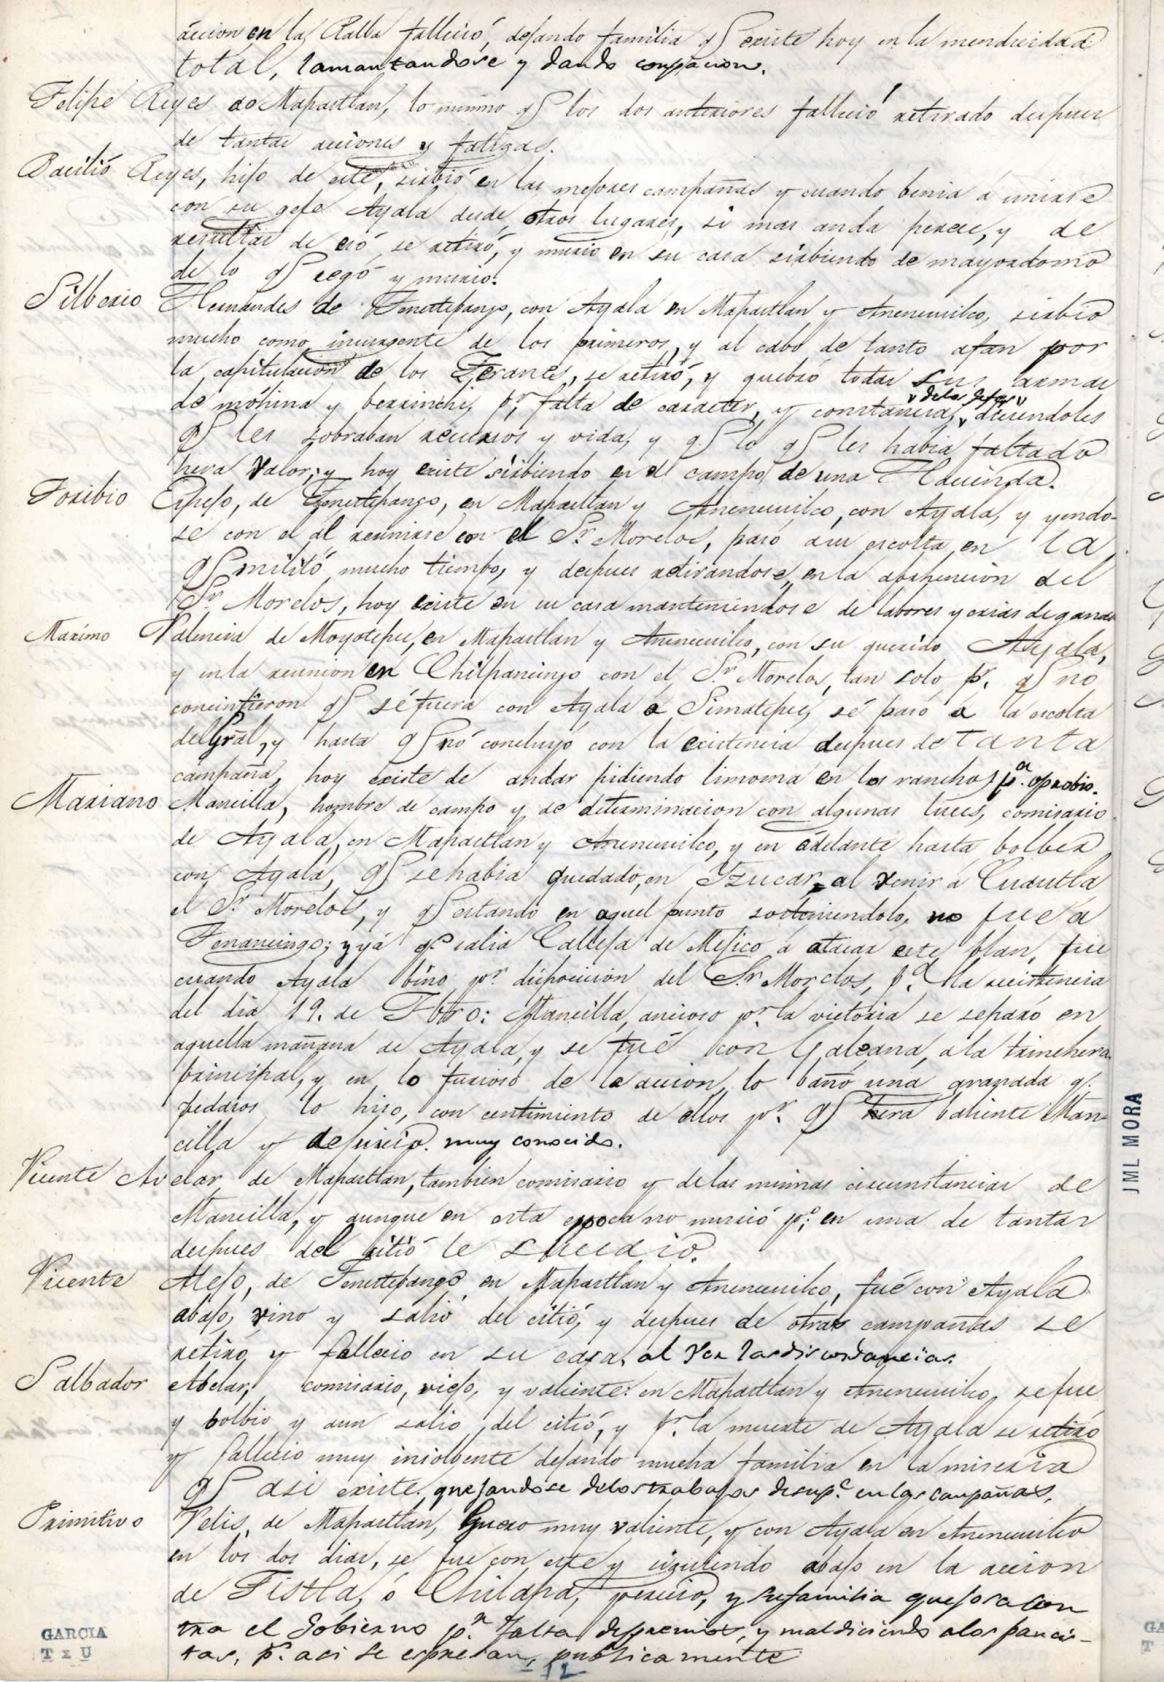 accion en la Palba falleció, dejando familia q̃ existe hoy en la mendicidad
total, lamantandose y dando compacion.
Felipe Reyes de Mapastlan, lo mismo q̃ los dos anteriores fallecio retirado despues
de tantas acciones y fatigas.
Bacilio Reyes, hijo de este, sirbió en las mejores campañas y cuando benia a unirse
con su gefe Ayala desde otros lugares, si mas anda perece, y de
resultas de eso se retiró, y murio en su casa sirbiendo de mayordomo
de lo q̃ cegó y murió.
Silberio Hernandes de Tenextepango, con Ayala en Mapastlan y Anenecuilco, sirbio
mucho como insurgente de los primeros, y al cabo de tanto afan por
la capitulacion de los Teranes, se retiró, y quebró todas sus armas
de móhina y berrinche, pr. falta de caracter, y constancia, de los Jefes, diciendoles
q̃ les sobraban recursos y vida, y q̃ lo q̃ les habia faltado
hera valor; y hoy existe sirbiendo en el campo de una Hacienda.
Toribio Espejo, de Tenextepango, en Mapastlan y Anenecuilco, con Ayala, y yendo-
se con el al reunirse con el Sr. Morelos, pasó a su escolta, en la
q̃ militó mucho tiempo, y despues retirandose, en la aprehencion del
Sr. Morelos, hoy existe en su casa manteniendose de labores y crias de ganado
Maximo Valencia de Moyotepec, en Mapastlan y Anenecuilco, con su querido Ayala,
y en la reunion en Chilpancingo con el Sr. Morelos, tan solo pr. q̃ no
concintieron q̃ sé fuera con Ayala á Simatepec, sé pasó a la escolta
del Gral, y hasta q̃ nó concluyo con la existencia despues de tanta
campaña, hoy existe de andar pidiendo limoma en los ranchos pa. oprobio.
Mariano Mancilla, hombre de campo y de determinacion con algunas luces, comisario
de Ayala, en Mapastlan y Anenecuilco, y en adelante hasta bolber
con Ayala, q̃ se habia quedado, en Yzucar, al venir a Cuautla
el Sr. Morelos, y q̃ estando en aquel punto sosteniendolo, no fue a
Tenancingo; y ya qe. salia Calleja de Mejico a atacar este plan, fue
cuando Ayala bino pr. disposicion del Sr. Morelos, pa. la recistencia
del dia 19. de Fbro: Mancilla, ancioso pr. la victoria se separó en
aquella mañana de Ayala, y se fué con Galeana, a la trinchera
principal, y en lo furioso de la accion, lo bañó una granada q.
pedasos lo hiso, con centimiento de ellos pr. q̃ hera baliente Man
cilla y de juicio muy conocido.
Vicente Avelar de Mapastlan, tambien comisario y de las mismas circunstancias de
Mancilla, y aunque en esta epoca no murió pr. en una de tantas
despues del citió le sucedio.
Vicente Alejo, de Tenextepango, en Mapastlan y Anenecuilco, fué con Ayala
abajo, vino y salió del citió, y despues de otras campañas se
retiró y fallecio en su casa, al ver las discordancias.
Salbador Abelar, comisario, viejo, y valiente: en Mapastlan y Anenecuilco, se fue
y bolbio y aun salio del citió, y pr. la muerte de Ayala se retiró
y fallecio muy insolbente dejando mucha familia en la miseria
q̃ asi existe, quejandose de los trabajos de su pe. en las campañas.
Primitivo Velis, de Mapastlan, Guero muy valiente, y con Ayala en Anenecuilco
en los dos dias, sé fue con este y ciguiendo abajo en la accion
de Tistla, o Chilapa, perecio, y su familia quejosa con
tra el Gobierno pr. falta de premios, y maldiciendo a los parcis-
tas, pr. aci se espresan, publicamente
12
GARCIA
T x U
JML MORA